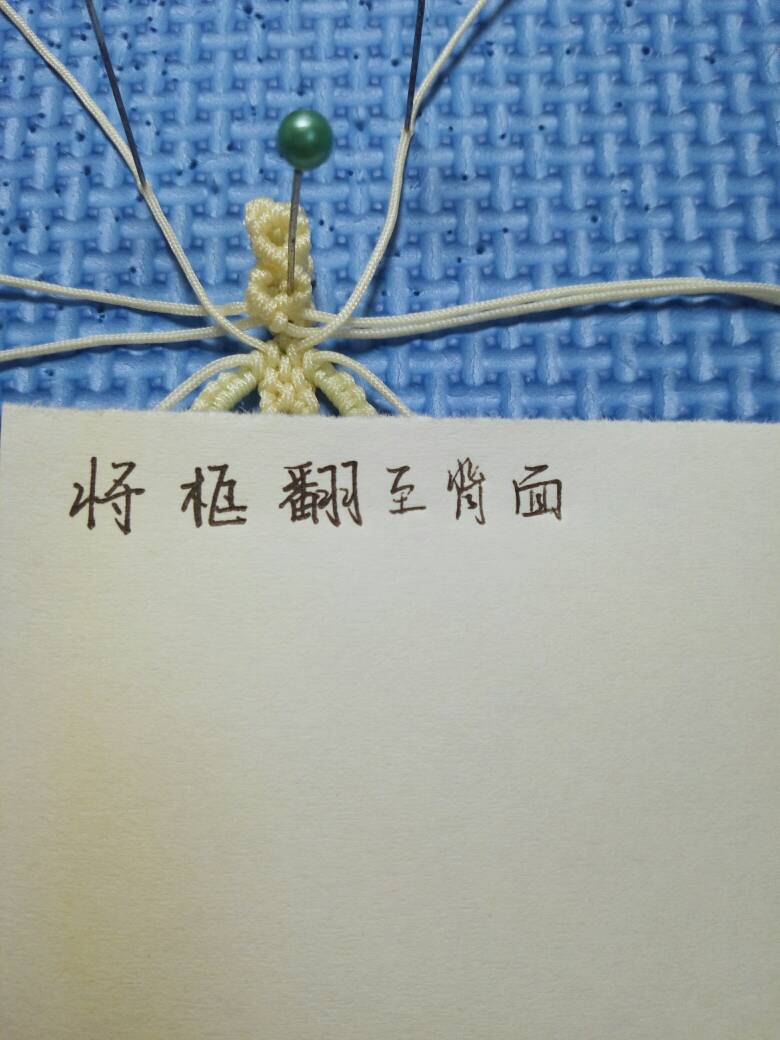 将框翻至背面